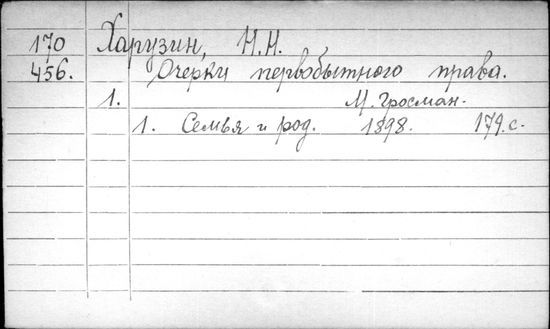 170 Харузин, Н.Н.
456. Очерки первобытного права.
1. М. Гросман.
1. Семья и род. 1898. 179. с.